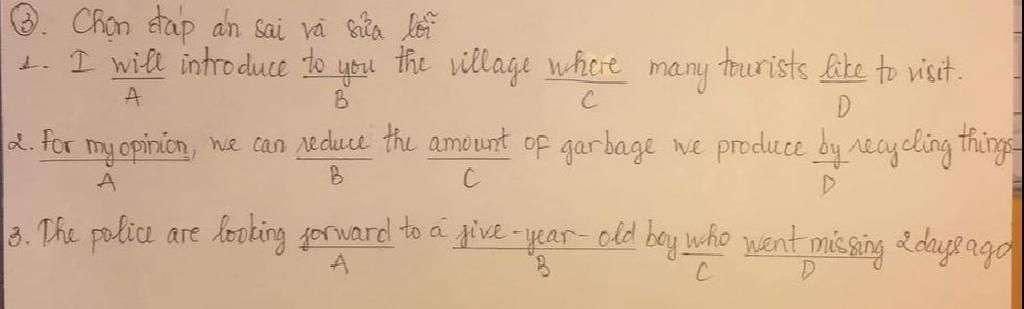 ③. Chọn đáp án sai và sửa lỗi
1. I will introduce to you the village where many tourists like to visit.
A B C D
2. For my opinion, we can reduce the amount of garbage we produce by recycling things
A B C D
3. The police are looking forward to a five-year-old boy who went missing 2 days ago
A B C D